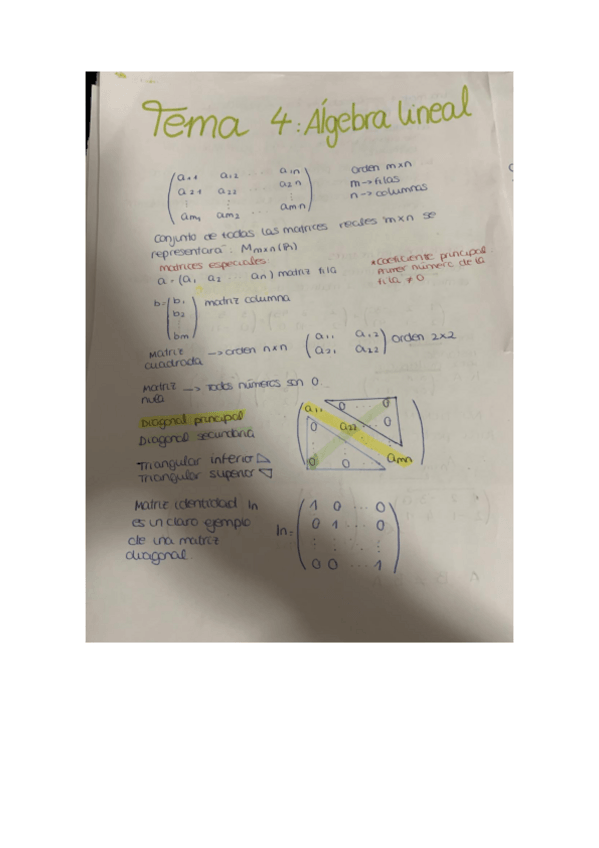 Tema 4: Álgebra lineal
a11 a12 ... a1n
a21 a22 a2n
⋮ ⋮ ⋮
am1 am2 ... amn
orden mxn
m → filas
n → columnas
Conjunto de todas las matrices reales mxn se
representará: Mmxn(R)
matrices especiales
a = (a1 a2 ... an) matriz fila
*coeficiente principal
primer número de la
fila ≠ 0
b = (b1 b2 ⋮ bm) matriz columna
Matriz cuadrada → orden nxn
(a11 a12
a21 a22) orden 2x2
Matriz nula → Todos números son 0.
Diagonal principal
Diagonal secundaria
Triangular inferior
Triangular superior
a11 0 ... 0
0 a22 ... 0
0 0 amn
Matriz identidad In
es un claro ejemplo
de una matriz
diagonal.
In =
1 0 ... 0
0 1 ... 0
⋮ ⋮ ⋮
0 0 ... 1